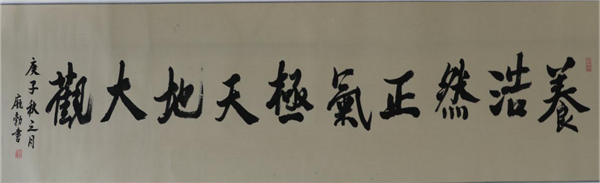 養浩然正氣極天地大觀
庚子秋之月